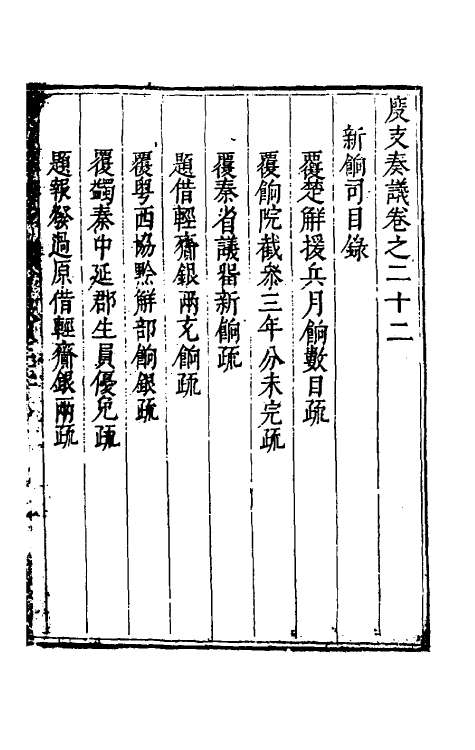 度支奏議卷之二十二
新餉司目錄
覆楚解援兵月餉數目疏
覆餉院截叅三年分未完疏
覆秦省議留新餉疏
題借輕齎銀兩充餉疏
覆粵西協黔解部餉銀疏
覆蠲秦中延郡生員優免疏
題報發過原借輕齎銀兩疏